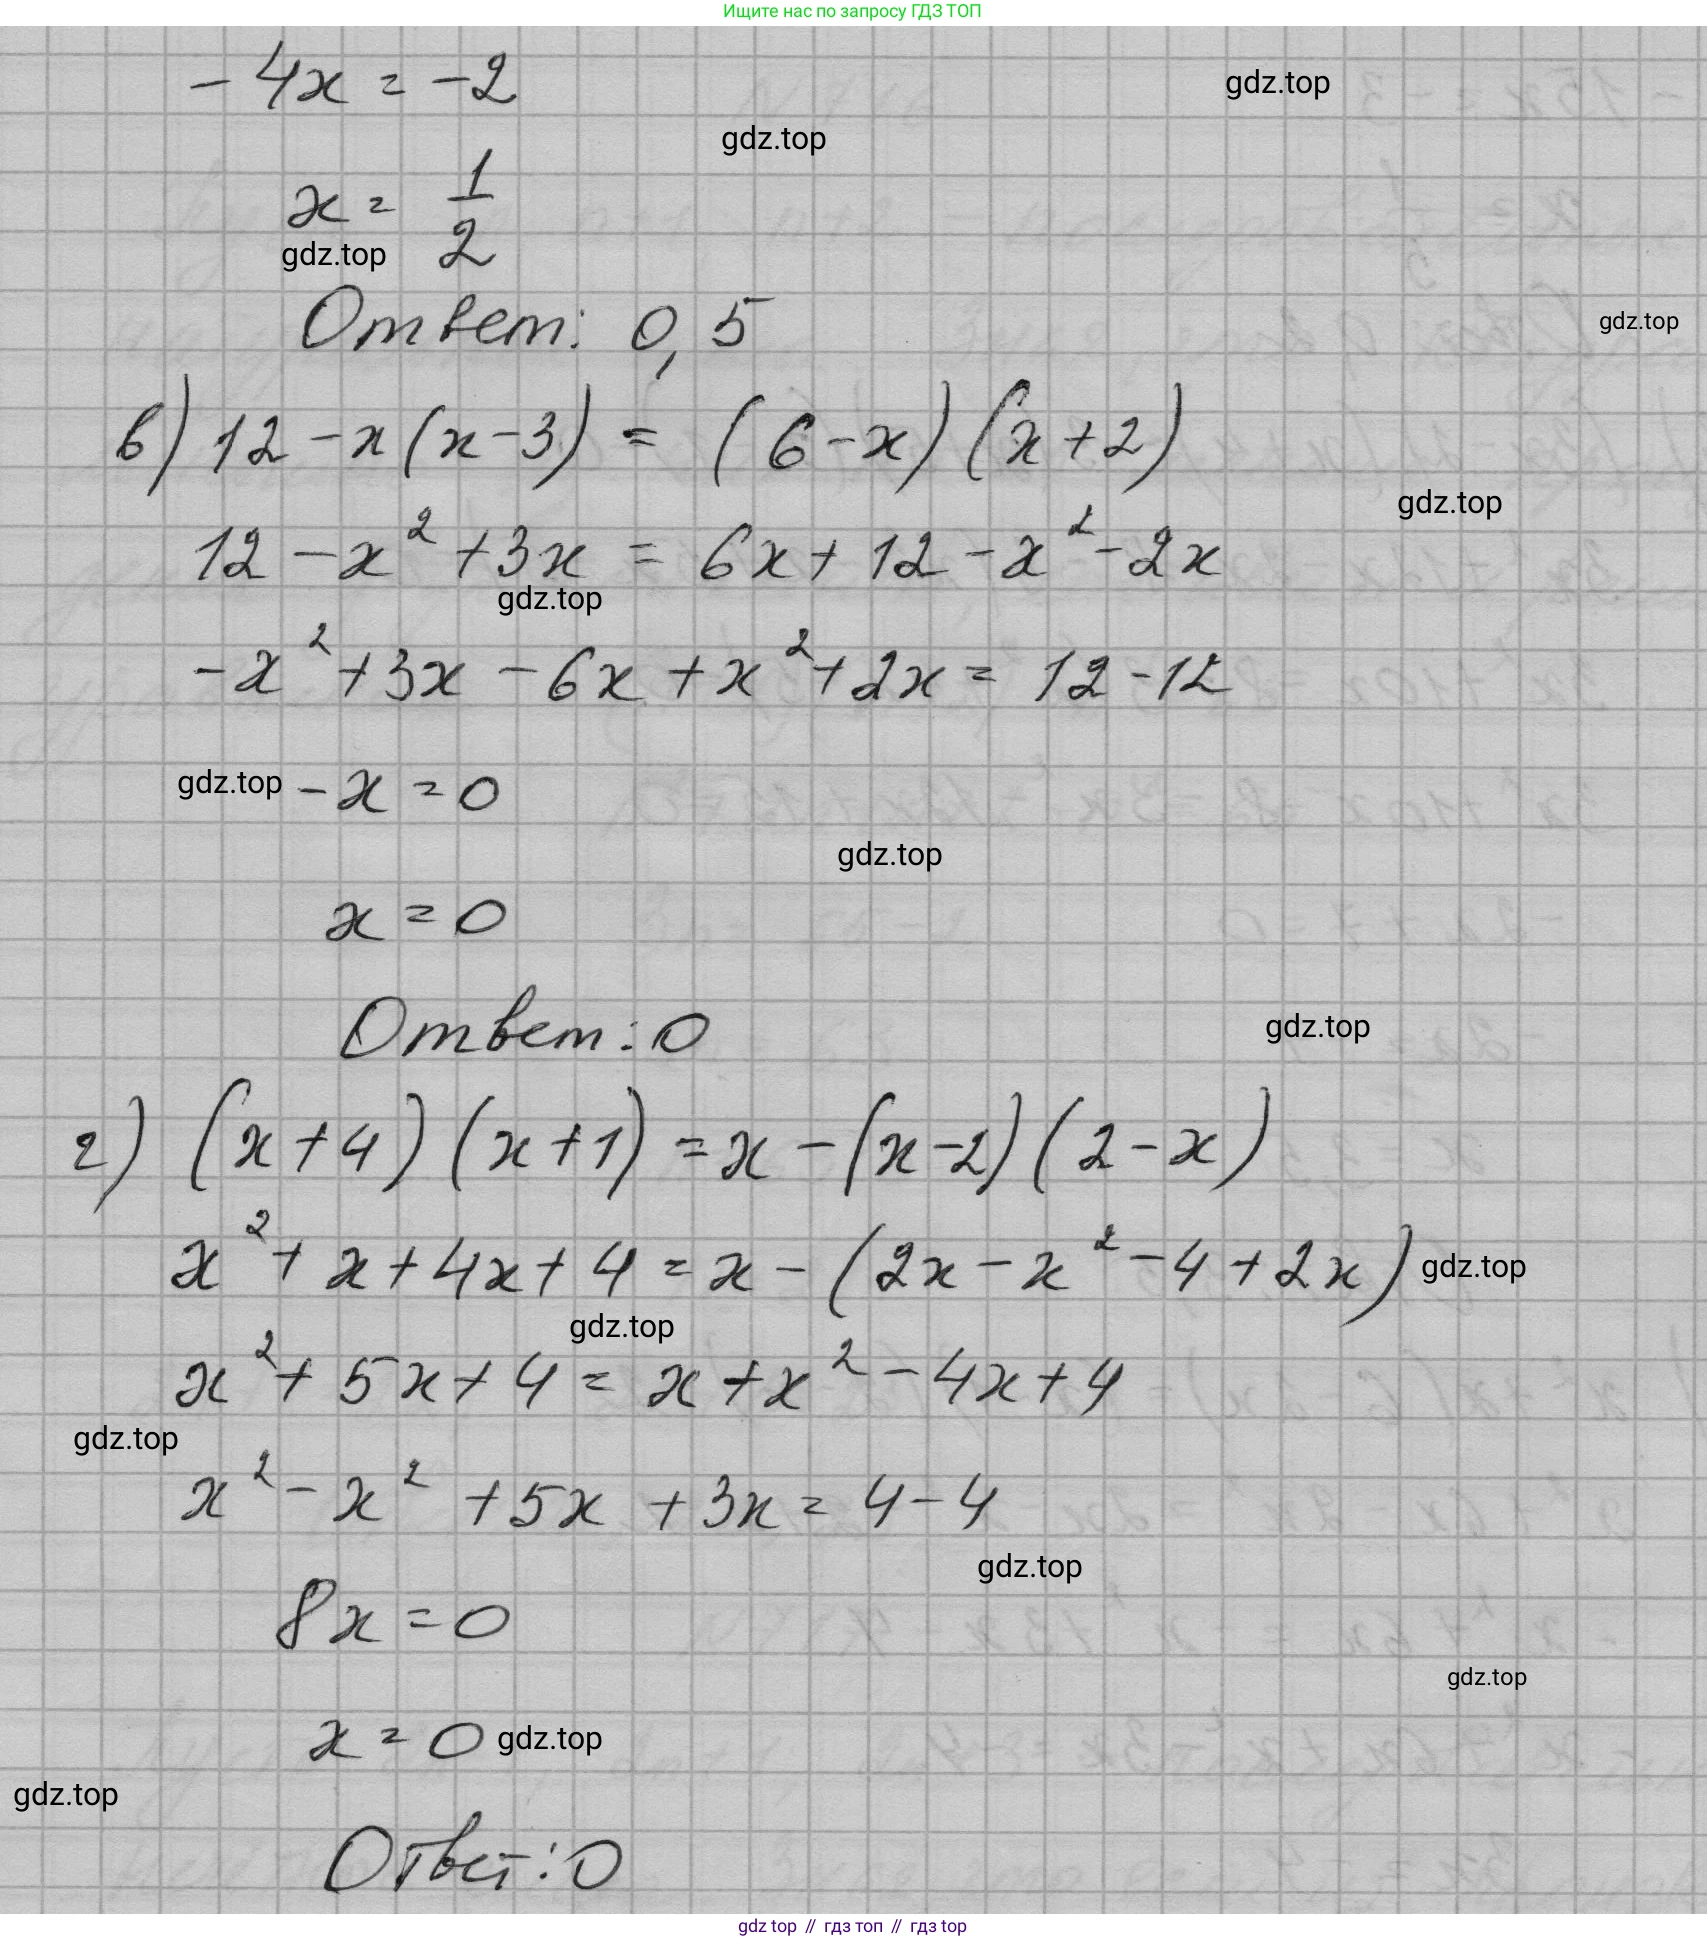 Ищите нас по запросу ГДЗ ТОП
- 4x = -2
gdz.top
gdz.top
x = 1/2
gdz.top
Ответ: 0,5
gdz.top
в) 12 - x(x-3) = (6-x)(x+2)
gdz.top
12 - x² + 3x = 6x + 12 - x² - 2x
gdz.top
-x² + 3x - 6x + x² + 2x = 12 - 12
gdz.top
-x = 0
gdz.top
x = 0
gdz.top
Ответ: 0
г) (x+4)(x+1) = x - (x-2)(2-x)
x² + x + 4x + 4 = x - (2x - x² - 4 + 2x)
gdz.top
gdz.top
x² + 5x + 4 = x + x² - 4x + 4
gdz.top
x² - x² + 5x + 3x = 4 - 4
gdz.top
8x = 0
gdz.top
x = 0
gdz.top
gdz.top
Ответ: 0
gdz top // гдз топ // гдз top